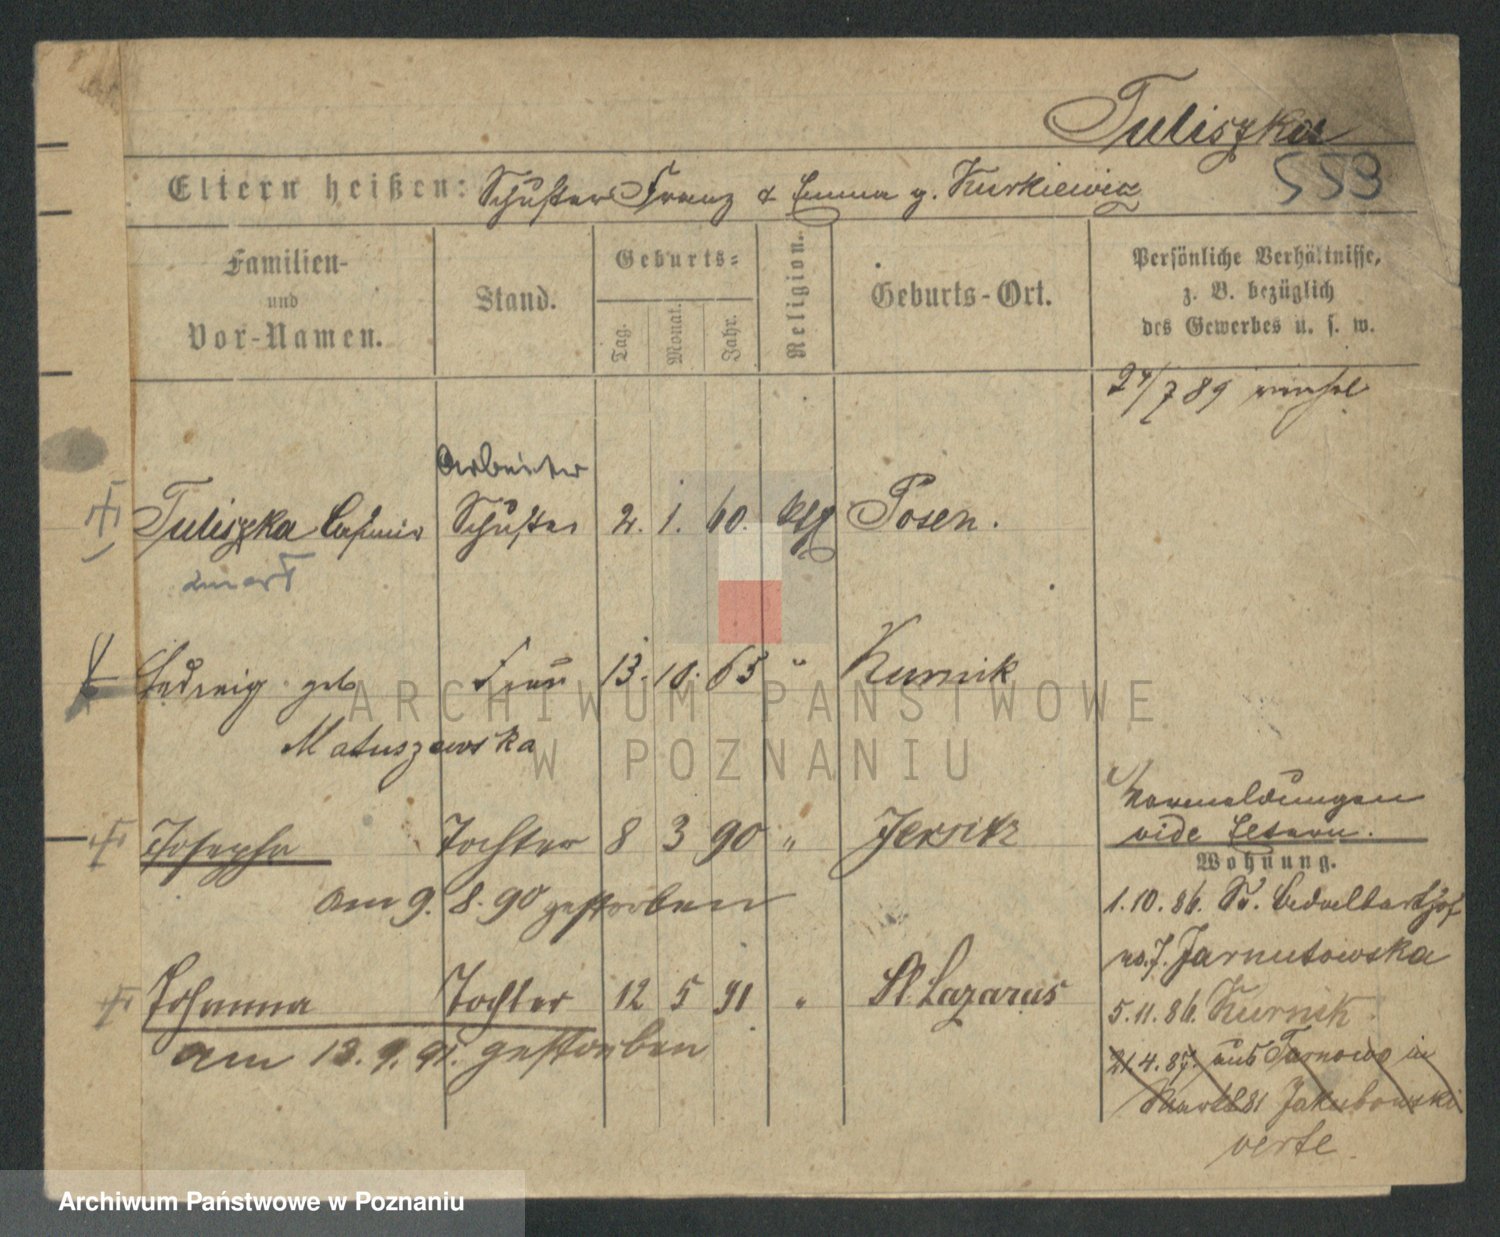 Tuliszka
559
Eltern heißen: Schuster Franz & Emma g. Kurkiewicz
Familien-
und
Vor-Namen.
Stand.
Geburts-
Tag.
Monat.
Jahr.
Religion.
Geburts-Ort.
Persönliche Verhältnisse,
z. B. bezüglich
des Gewerbes u. s. w.
24/7 89
Arbeiter
Tuliszka Casimir Schuster 2. 1. 60. kth Posen.
Hedwig geb Frau 13. 10. 65 " Kurnik
Matuszewska
Vormeldungen
vide Eltern.
Josepha Tochter 8 3 90 " Jersitz
Wohnung.
am 9. 8. 90 gestorben
1.10.86. St.
no. 7. Jarnutowska
Johanna Tochter 12 5 91 " St. Lazarus
5.11.86. Kurnik.
am 13. 9. 91. gestorben
21.4.87. aus Tarnowo in
Jakubowski
verte.
ARCHIWUM PAŃSTWOWE
W POZNANIU
Archiwum Państwowe w Poznaniu